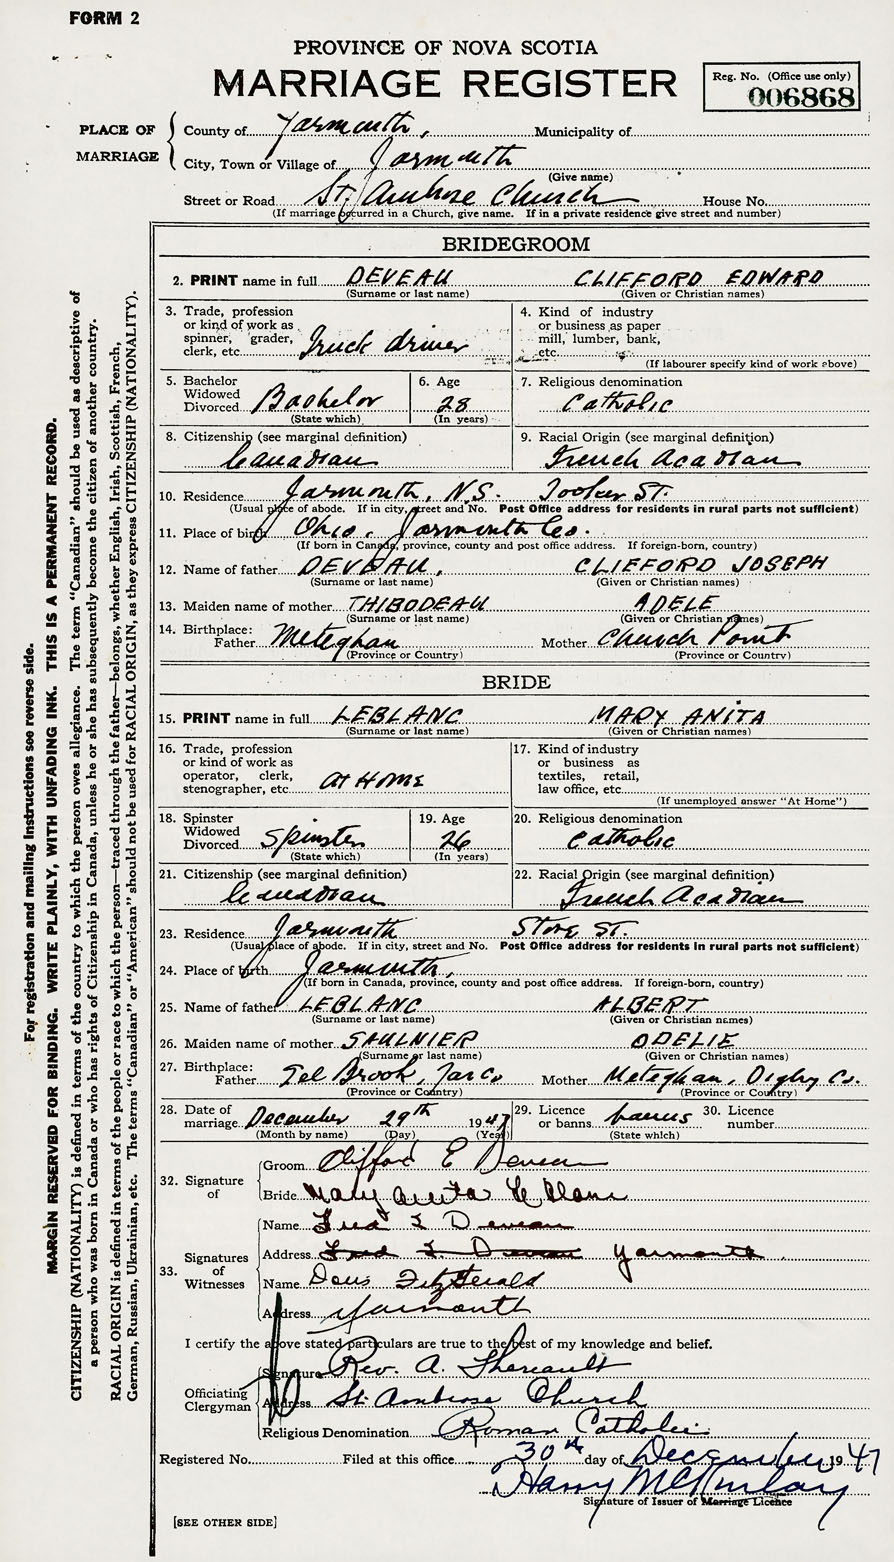 FORM 2
PROVINCE OF NOVA SCOTIA
MARRIAGE REGISTER
Reg. No. (Office use only)
006868
PLACE OF MARRIAGE
County of Yarmouth, Municipality of
City, Town or Village of Yarmouth
(Give name)
Street or Road St. Ambrose Church House No.
(If marriage occurred in a Church, give name. If in a private residence give street and number)
BRIDEGROOM
2. PRINT name in full DEVEAU CLIFFORD EDWARD
(Surname or last name) (Given or Christian names)
3. Trade, profession or kind of work as spinner, grader, clerk, etc. Truck driver
4. Kind of industry or business as paper mill, lumber, bank, etc.
(If labourer specify kind of work above)
5. Bachelor Widowed Divorced Bachelor
(State which)
6. Age 28
(In years)
7. Religious denomination Catholic
8. Citizenship (see marginal definition) Canadian
9. Racial Origin (see marginal definition) French Acadian
10. Residence Yarmouth, N.S. Tooker St.
(Usual place of abode. If in city, street and No. Post Office address for residents in rural parts not sufficient)
11. Place of birth Ohio, Yarmouth Co.
(If born in Canada, province, county and post office address. If foreign-born, country)
12. Name of father DEVEAU, CLIFFORD JOSEPH
(Surname or last name) (Given or Christian names)
13. Maiden name of mother THIBODEAU ADELE
(Surname or last name) (Given or Christian names)
14. Birthplace: Father Meteghan Mother Church Point
(Province or Country) (Province or Country)
BRIDE
15. PRINT name in full LEBLANC MARY ANITA
(Surname or last name) (Given or Christian names)
16. Trade, profession or kind of work as operator, clerk, stenographer, etc. AT HOME
17. Kind of industry or business as textiles, retail, law office, etc.
(If unemployed answer "At Home")
18. Spinster Widowed Divorced Spinster
(State which)
19. Age 26
(In years)
20. Religious denomination Catholic
21. Citizenship (see marginal definition) Canadian
22. Racial Origin (see marginal definition) French Acadian
23. Residence Yarmouth St.
(Usual place of abode. If in city, street and No. Post Office address for residents in rural parts not sufficient)
24. Place of birth Yarmouth,
(If born in Canada, province, county and post office address. If foreign-born, country)
25. Name of father LEBLANC ALBERT
(Surname or last name) (Given or Christian names)
26. Maiden name of mother SAULNIER ODELIE
(Surname or last name) (Given or Christian names)
27. Birthplace: Father Eel Brook, Yar Co Mother Meteghan, Digby Co.
(Province or Country) (Province or Country)
28. Date of marriage December 29th 1947
(Month by name) (Day) (Year)
29. Licence or banns banns
(State which)
30. Licence number
32. Signature of
Groom Clifford E Deveau
Bride Mary Anita LeBlanc
33. Signatures of Witnesses
Name Fred E Deveau
Address Fred E Deveau Yarmouth
Name Doris Fitzgerald
Address Yarmouth
I certify the above stated particulars are true to the best of my knowledge and belief.
Officiating Clergyman
Signature Rev. A. Thereault
Address St. Ambrose Church
Religious Denomination Roman Catholic
Registered No. Filed at this office 30th day of December 1947
Harry McKinlay
Signature of Issuer of Marriage Licence
[SEE OTHER SIDE]
For registration and mailing instructions see reverse side.
MARGIN RESERVED FOR BINDING. WRITE PLAINLY, WITH UNFADING INK. THIS IS A PERMANENT RECORD.
CITIZENSHIP (NATIONALITY) is defined in terms of the country to which the person owes allegiance. The term "Canadian" should be used as descriptive of
a person who was born in Canada or who has rights of Citizenship in Canada, unless he or she has subsequently become the citizen of another country.
RACIAL ORIGIN is defined in terms of the people or race to which the person—traced through the father—belongs, whether English, Irish, Scottish, French,
German, Russian, Ukrainian, etc. The terms "Canadian" or "American" should not be used for RACIAL ORIGIN, as they express CITIZENSHIP (NATIONALITY).